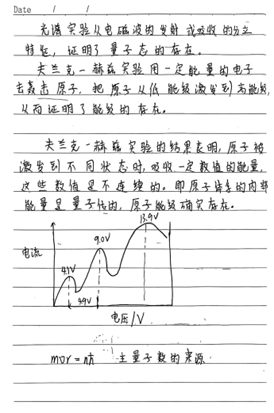 Date / /
光谱实验从电磁波的发射或吸收的分立
特征，证明了量子态的存在。
夫兰克-赫兹实验用一定能量的电子
去轰击原子，把原子从低能级激发到高能级，
从而证明了能级的存在。
夫兰克-赫兹实验的结果表明，原子被
激发到不同状态时，吸收一定数值的能量，
这些数值是不连续的。即原子体系的内部
能量是量子化的，原子能级确实存在。
13.9V
9.0V
电流
4.1V
4.9V
电压/V
mvr = nħ 主量子数的来源